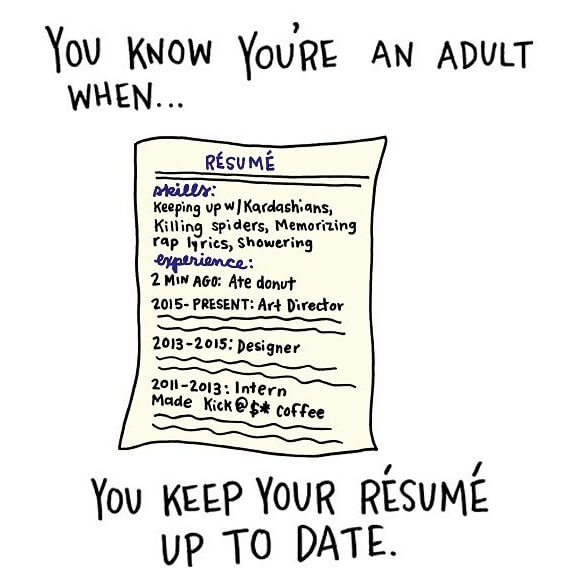 YOU KNOW YOU'RE AN ADULT
WHEN...
RÉSUMÉ
skills:
Keeping up w/Kardashians,
Killing spiders, Memorizing
rap lyrics, Showering
experience:
2 MIN AGO: Ate donut
2015-PRESENT: Art Director
2013-2015: Designer
2011-2013: Intern
Made Kick@$* coffee
YOU KEEP YOUR RÉSUMÉ
UP TO DATE.